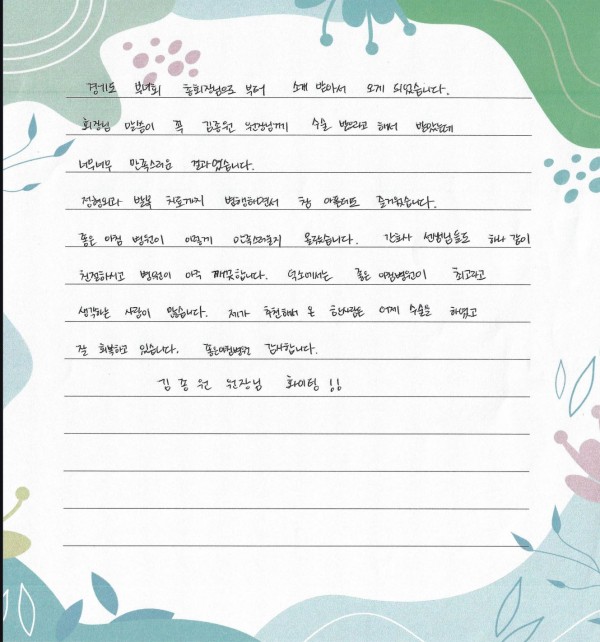 경기도 부녀회 총회장님으로 부터 소개 받아서 오게 되었습니다.
회장님 말씀이 꼭 김종원 원장님께 수술 받으라고 해서 받았는데
너무너무 만족스러운 결과였습니다.
정형외과 발목 치료까지 병행하면서 참 아픈데도 즐거웠습니다.
좋은 아침 병원이 이렇게 만족스러울지 몰랐습니다. 간호사 선생님들도 하나 같이
친절하시고 병원이 아주 깨끗합니다. 덕소에서는 좋은 아침병원이 최고라고
생각하는 사람이 많습니다. 제가 추천해서 온 한사람은 어제 수술을 하였고
잘 회복하고 있습니다. 좋은아침병원 감사합니다.
김종원 원장님 화이팅 !!